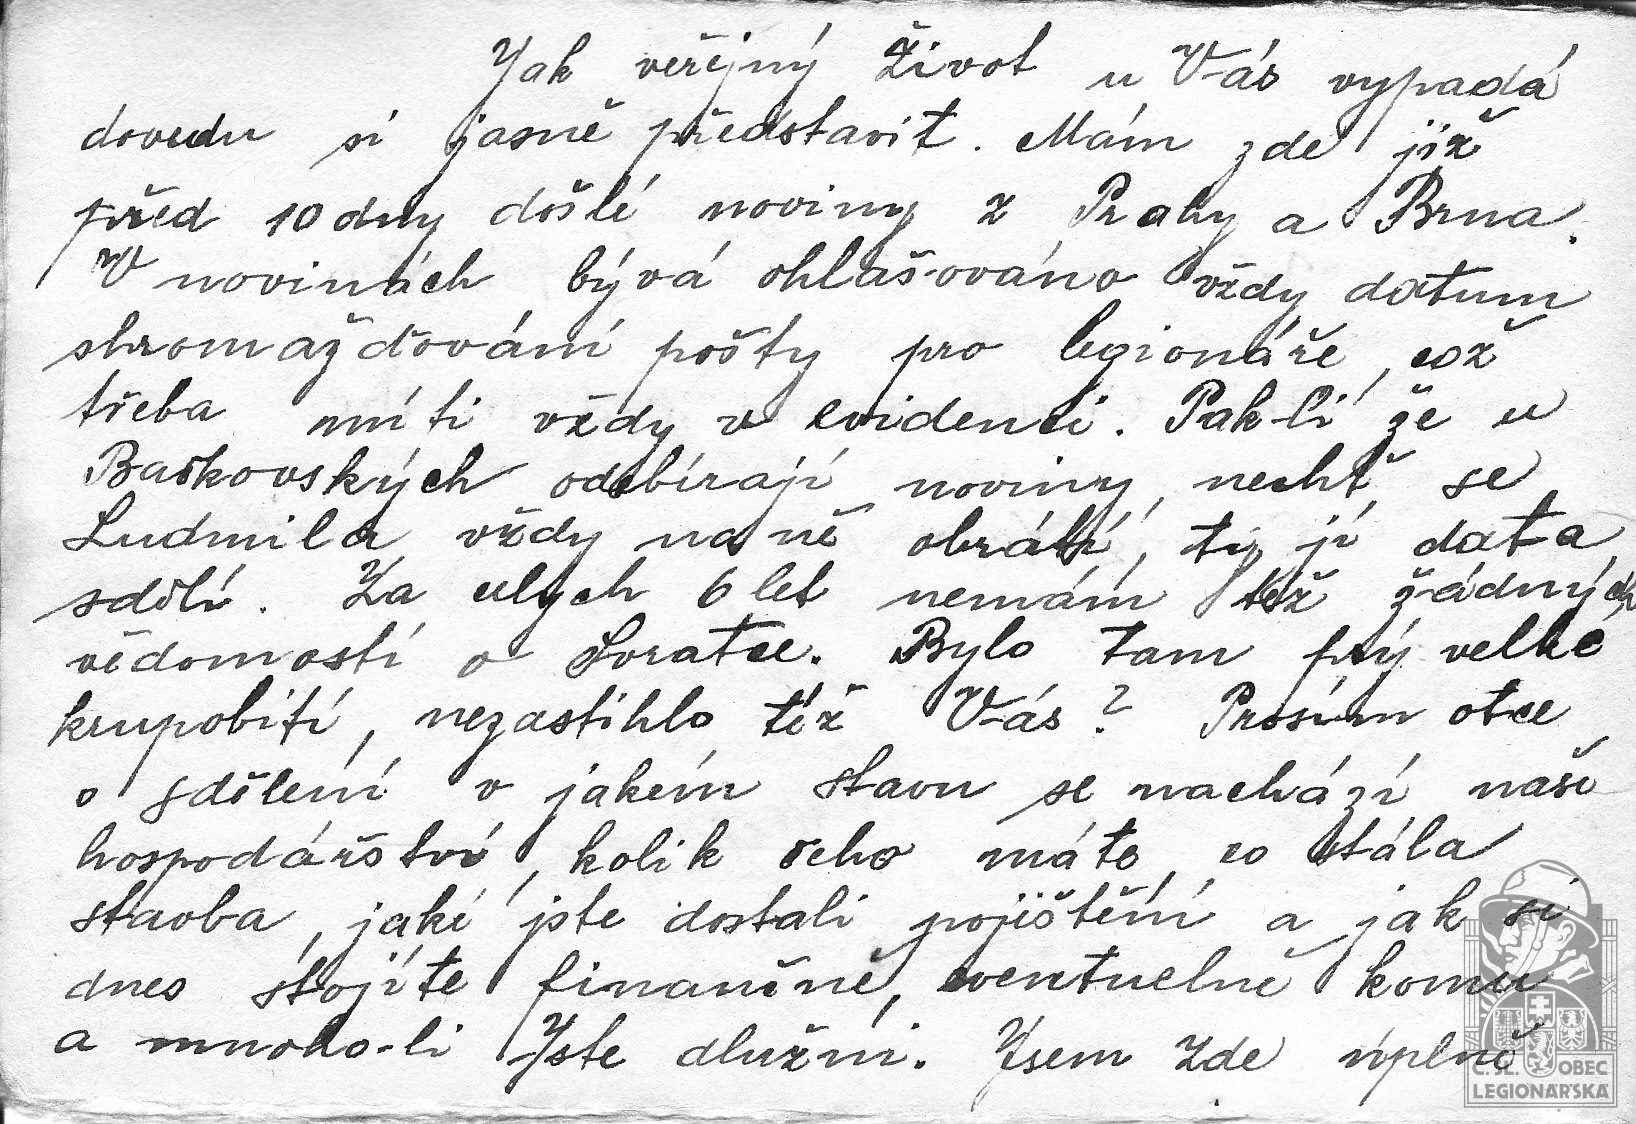 Jak veřejný život u Vás vypadá
dovedu si jasně představit. Mám zde již
před 10 dny došlé noviny z Prahy a Brna.
V novinách bývá ohlašováno vždy datum
shromažďování pošty pro legionáře, což
třeba míti vždy v evidenci. Pak-li že u
Bačkovských odebírají noviny, nechť se
Ludmila vždy na ně obrátí, ti jí data
sdělí. Za celych 6 let nemám též žádných
vědomostí o Svratce. Bylo tam prý velké
krupobití, nezastihlo též Vás? Prosím otce
o sdělení v jakém stavu se nachází naše
hospodářství, kolik čeho máte, co stála
stavba, jaké jste dostali pojištění a jak si
dnes stojíte finančně, eventuelně komu
a mnoho-li Jste dlužni. Jsem zde úplně
Č. SL. OBEC
LEGIONÁŘSKÁ